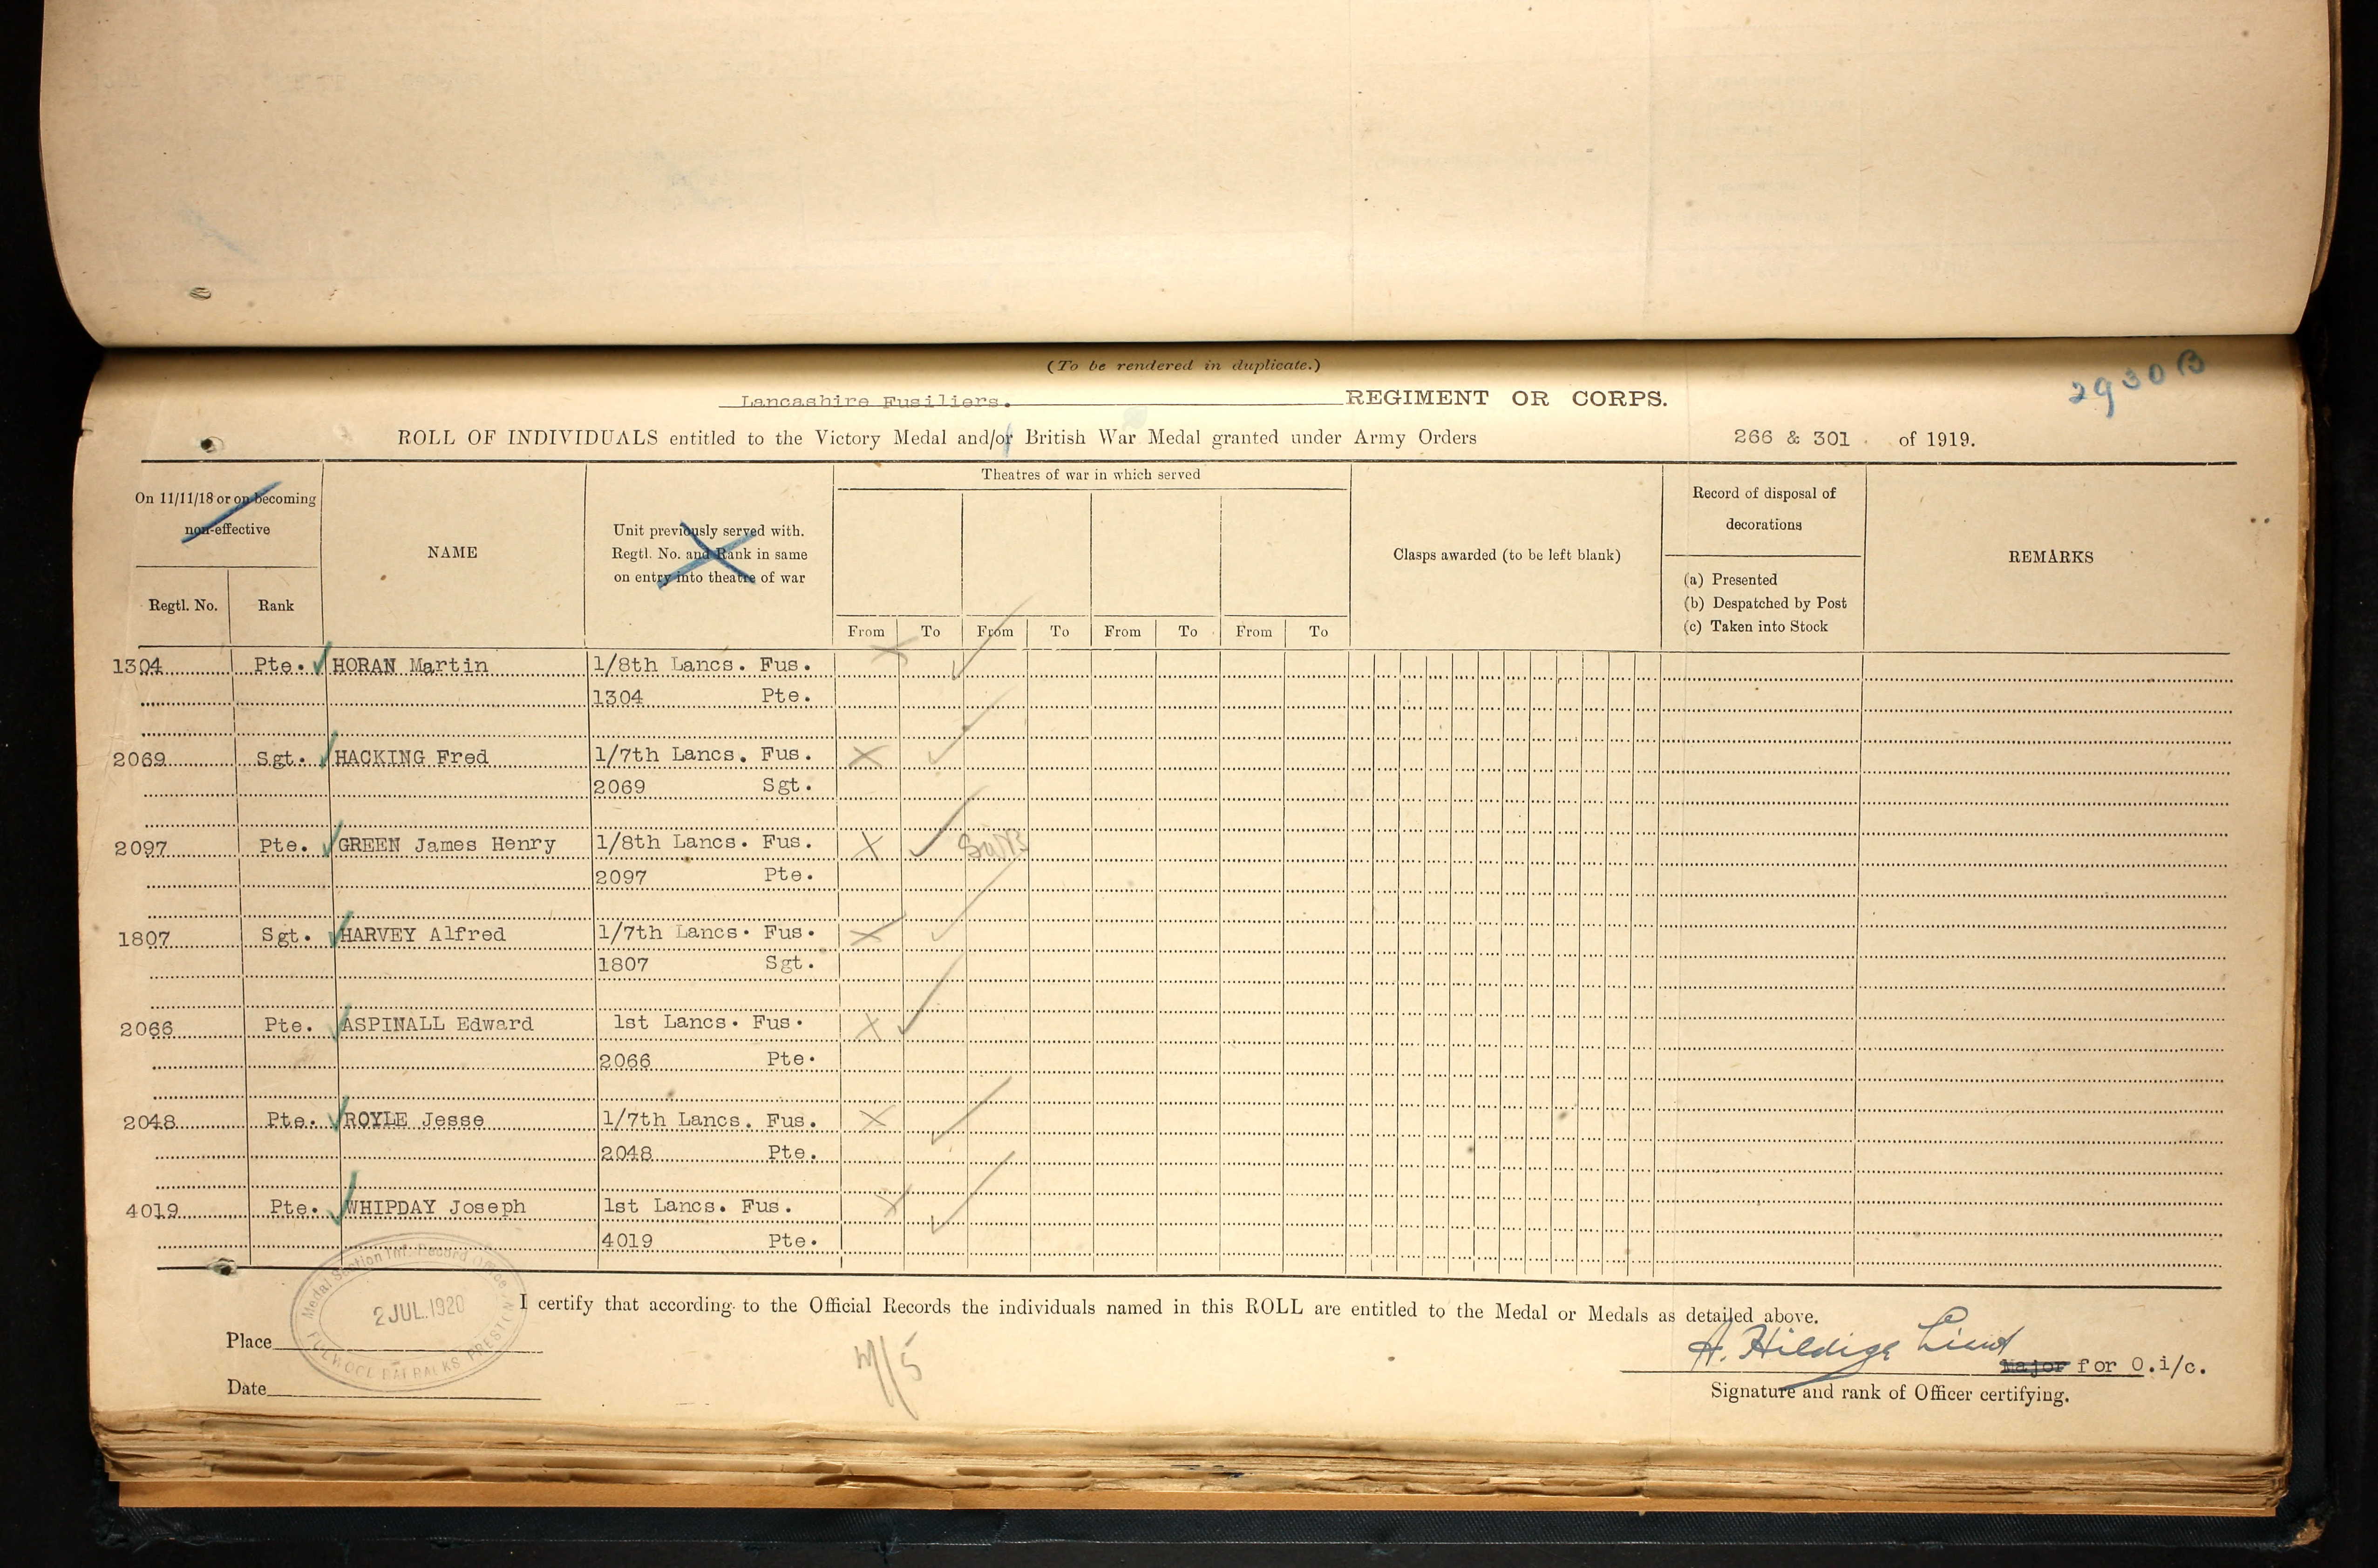 (To be rendered in duplicate.)
2930B
Lancashire Fusiliers. REGIMENT OR CORPS.
ROLL OF INDIVIDUALS entitled to the Victory Medal and/or British War Medal granted under Army Orders 266 & 301. of 1919.
Theatres of war in which served
On 11/11/18 or on becoming
non-effective
Regtl. No. Rank
NAME
Unit previously served with.
Regtl. No. and Rank in same
on entry into theatre of war
From To From To From To From To
Clasps awarded (to be left blank)
Record of disposal of
decorations
(a) Presented
(b) Despatched by Post
(c) Taken into Stock
REMARKS
1304 Pte. HORAN Martin 1/8th Lancs. Fus.
1304 Pte.
2069 Sgt. HACKING Fred 1/7th Lancs. Fus.
2069 Sgt.
2097 Pte. GREEN James Henry 1/8th Lancs. Fus.
2097 Pte.
1807 Sgt. HARVEY Alfred 1/7th Lancs. Fus.
1807 Sgt.
2066 Pte. ASPINALL Edward 1st Lancs. Fus.
2066 Pte.
2048 Pte. ROYLE Jesse 1/7th Lancs. Fus.
2048 Pte.
4019 Pte. WHIPDAY Joseph 1st Lancs. Fus.
4019 Pte.
Medal Section Inf. Record Office
2 JUL. 1920
FULWOOD BARRACKS PRESTON
I certify that according to the Official Records the individuals named in this ROLL are entitled to the Medal or Medals as detailed above.
Place
Date
A. Hildige Lieut
Major for O.i/c.
Signature and rank of Officer certifying.